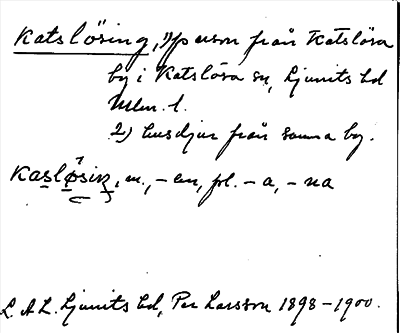 Katslösing, 1) person från Katslösa
by i Katslösa sn, Ljunits hd
Mlm. l.
2) husdjur från samma by.
kaslösiŋ, m., -en, pl. -a, -na
L.A.L. Ljunits hd, Per Larsson 1898-1900.